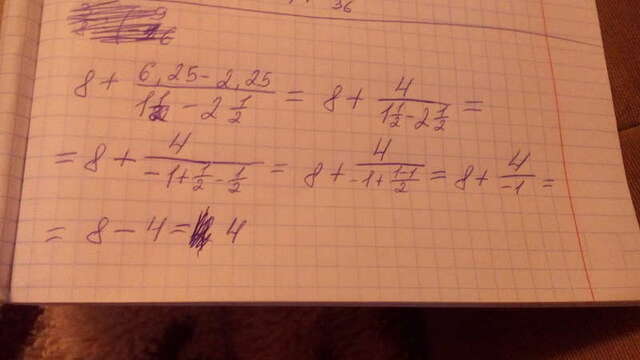 36
8 + (6,25 - 2,25)/(1 1/2 - 2 1/2) = 8 + 4/(1 1/2 - 2 1/2) =
= 8 + 4/(-1 + 1/2 - 1/2) = 8 + 4/(-1 + (1-1)/2) = 8 + 4/-1 =
= 8 - 4 = 4